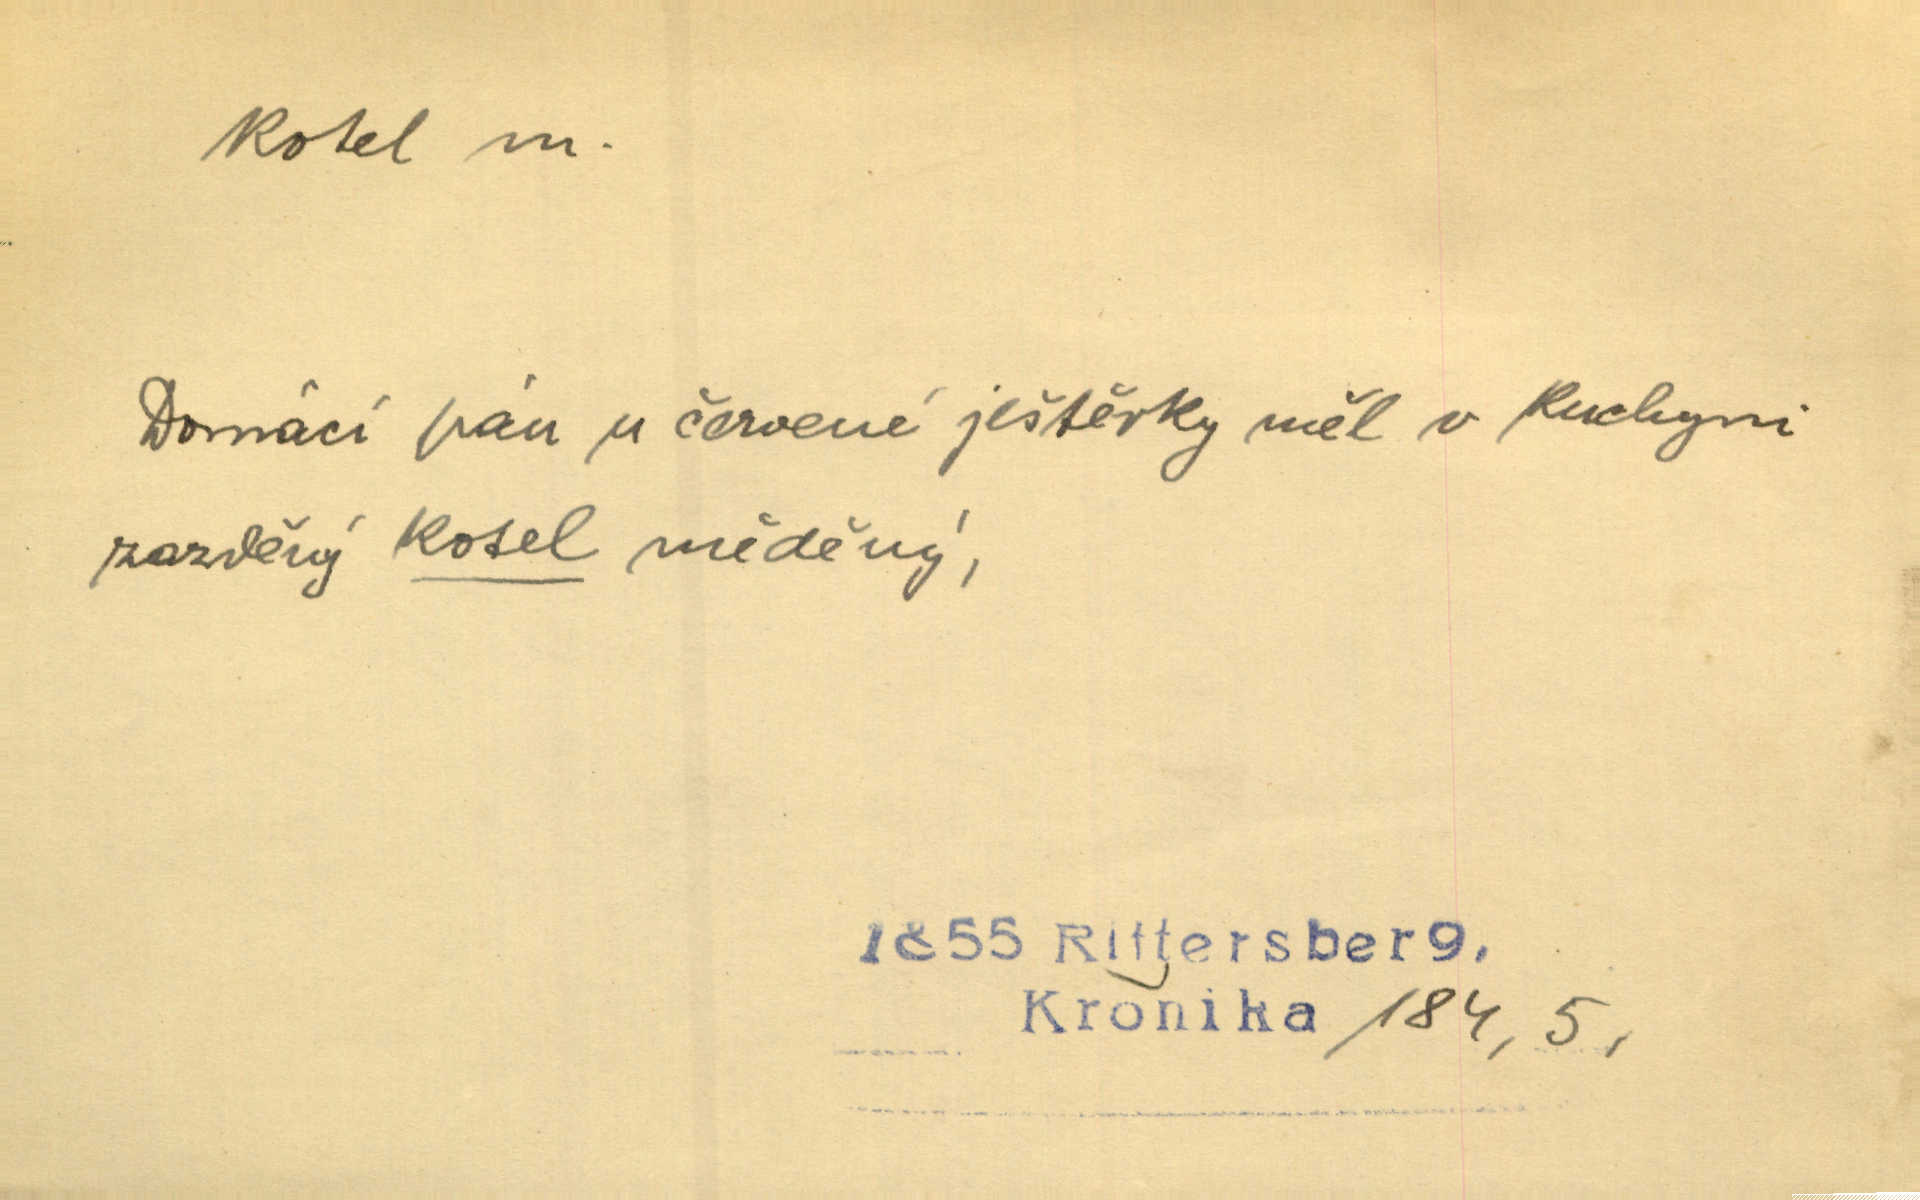 Kotel m.
Domácí pán u červené ještěrky měl v kuchyni
zazděný kotel měděný,
1855 Rittersberg.
Kronika 184, 5,